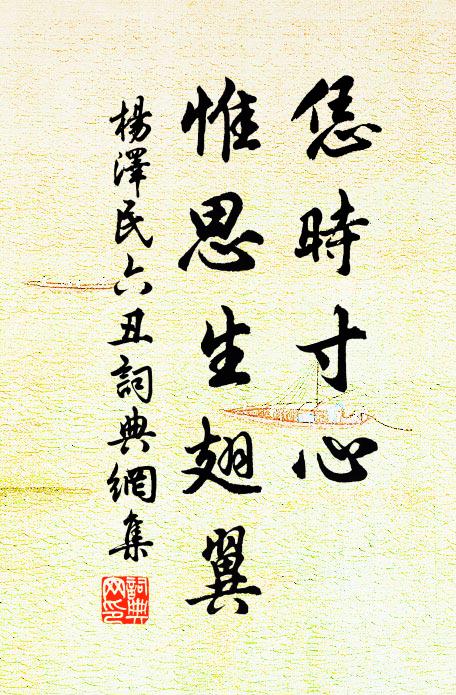 恁時寸心
惟思生翅翼
楊澤民六丑詞典網集
詞典
网印